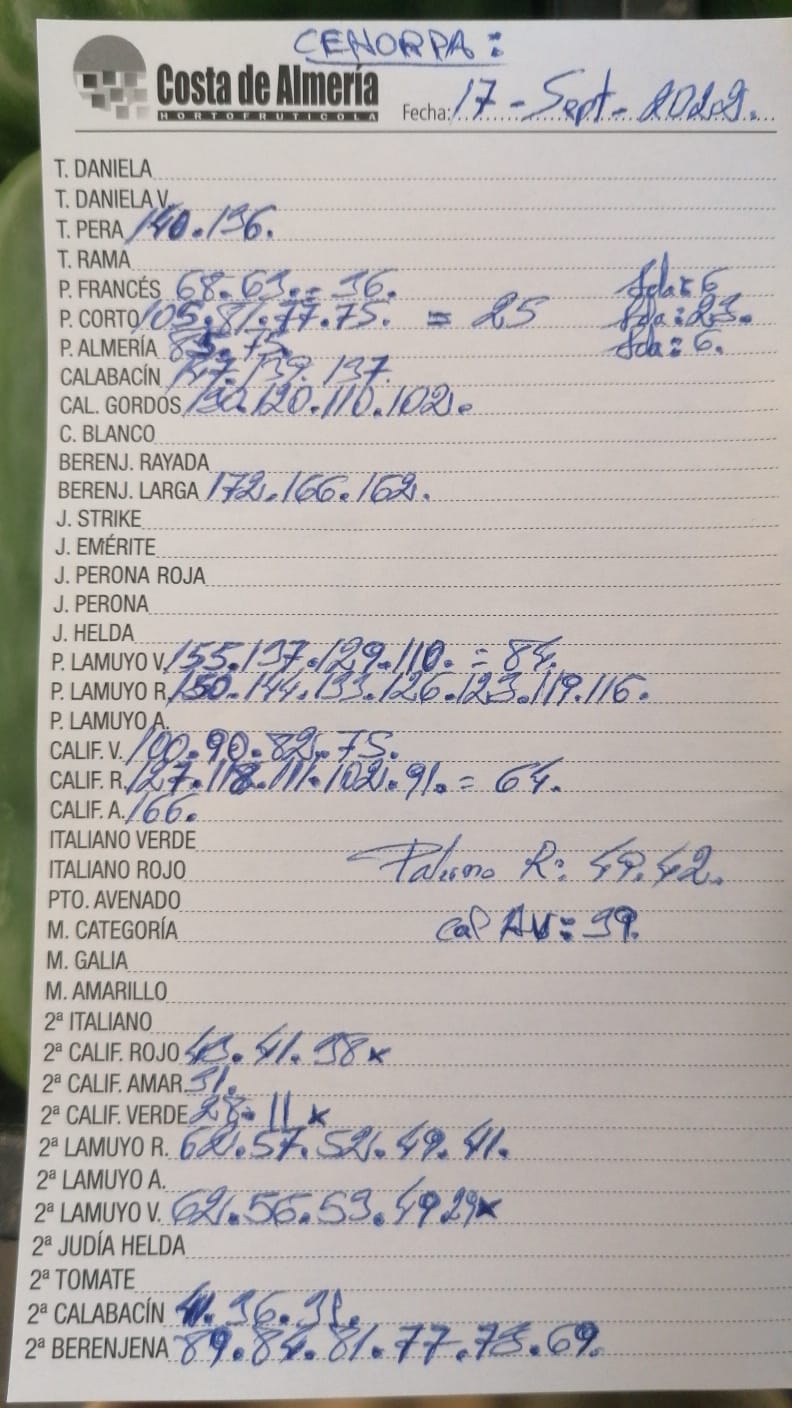 CEHORPA:
Costa de Almería
HORTOFRUTICOLA
Fecha: 17-Sept-2022.
T. DANIELA
T. DANIELA V.
T. PERA 140.136.
T. RAMA
P. FRANCÉS 68.63.=36. 2da: 6
P. CORTO 105.81.77.75. = 25 2da: 23.
P. ALMERÍA 85.75. 2da: 6.
CALABACÍN 147.139.137.
CAL. GORDOS 130.120.110.102.
C. BLANCO
BERENJ. RAYADA
BERENJ. LARGA 172.166.162.
J. STRIKE
J. EMÉRITE
J. PERONA ROJA
J. PERONA
J. HELDA
P. LAMUYO V. 155.137.129.110.=84.
P. LAMUYO R. 150.144.133.126.123.119.116.
P. LAMUYO A.
CALIF. V. 100.90.82.75.
CALIF. R. 127.118.111.102.91.=64.
CALIF. A. 166.
ITALIANO VERDE
ITALIANO ROJO Palermo R: 49.42.
PTO. AVENADO
M. CATEGORÍA cal AV: 39.
M. GALIA
M. AMARILLO
2ª ITALIANO
2ª CALIF. ROJO 43.41.38x
2ª CALIF. AMAR. 31.
2ª CALIF. VERDE 28.11x
2ª LAMUYO R. 62.57.52.49.41.
2ª LAMUYO A.
2ª LAMUYO V. 62.56.53.49.29x
2ª JUDÍA HELDA
2ª TOMATE
2ª CALABACÍN 41.36.31.
2ª BERENJENA 89.84.81.77.73.69.